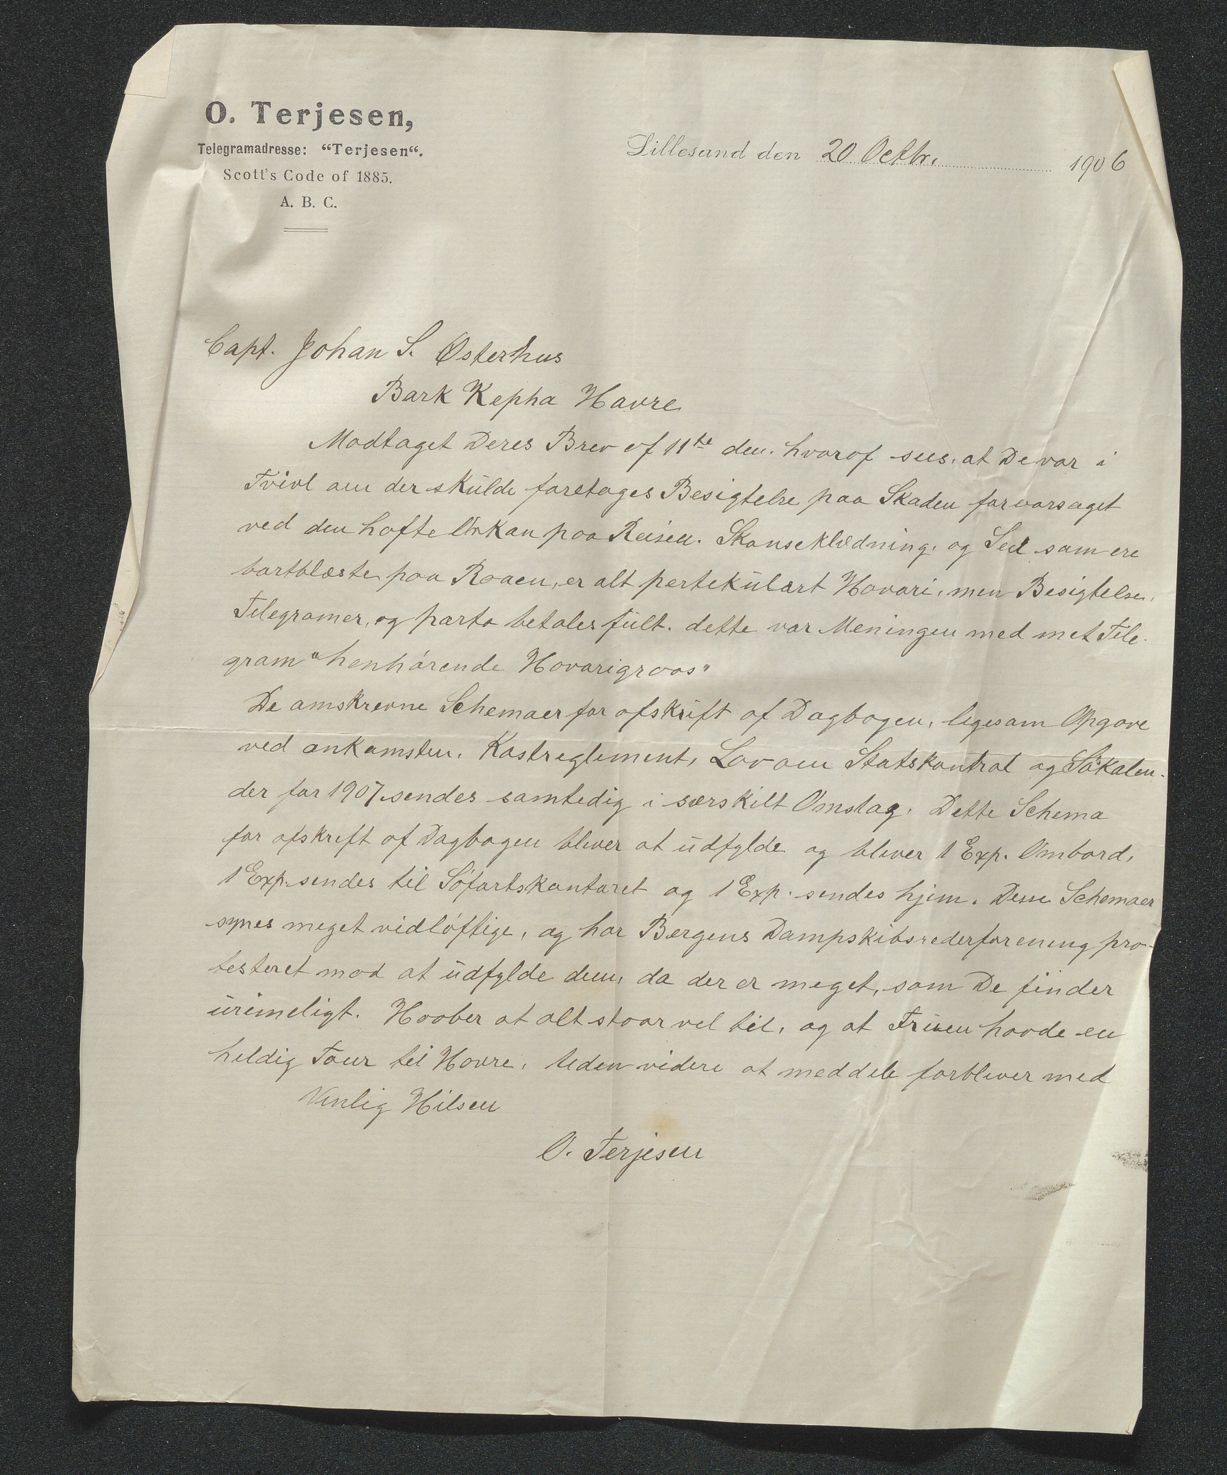 O. Terjesen,
Telegramadresse: “Terjesen“.
Scott's Code of 1885.
A. B. C.
Lillesand den 20 Octbr. 1906
Capt. Johan S. Østerhus
Bark Kepha Havre
Modtaget Deres Brev af 11te den. hvoraf sees, at De var i
Tvivl om der skulde foretages Besigtelse paa Skaden foraarsaget
ved den hafte Orkan paa Reisen. Skanseklædning, og Seil som ere
bortblæste paa Raaen, er alt partekulært Havari, men Besigtelse,
Telegramer, og porto betales fult. dette var Meningen med mit Tele-
gram "henhörende Havarigroos"
De omskrevne Schemaer for afskrift af Dagbogen, ligesom Opgave
ved ankomsten, Kostreglement, Lov om Statskontrol og Sökalen-
der for 1907 sendes samtedig i særskilt Omslag. Dette Schema
for afskrift af Dagbogen bliver at udfylde og bliver 1 Exp. Ombord,
1 Exp. sendes til Söfartskontoret og 1 Exp. sendes hjem. Disse Schemaer
synes meget vidlöftige, og har Bergens Dampskibsrederforening pro-
testeret mod at udfylde dem, da der er meget, som De finder
urimeligt. Haaber at alt staar vel til, og at Fruen havde en
heldig Tour til Havre. Uden videre at meddele forbliver med
Venlig Hilsen
O. Terjesen